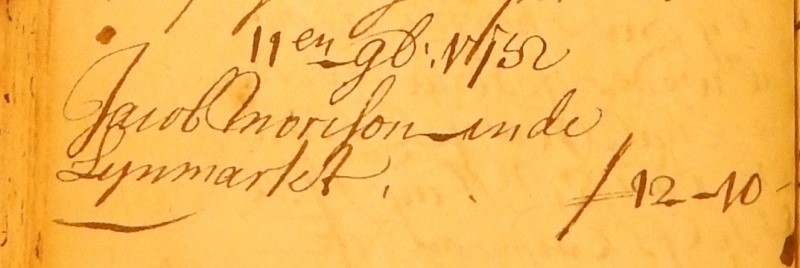 11en 9b: 1752
Jacob Morison inde
Lynmarkt.
/ 12-10